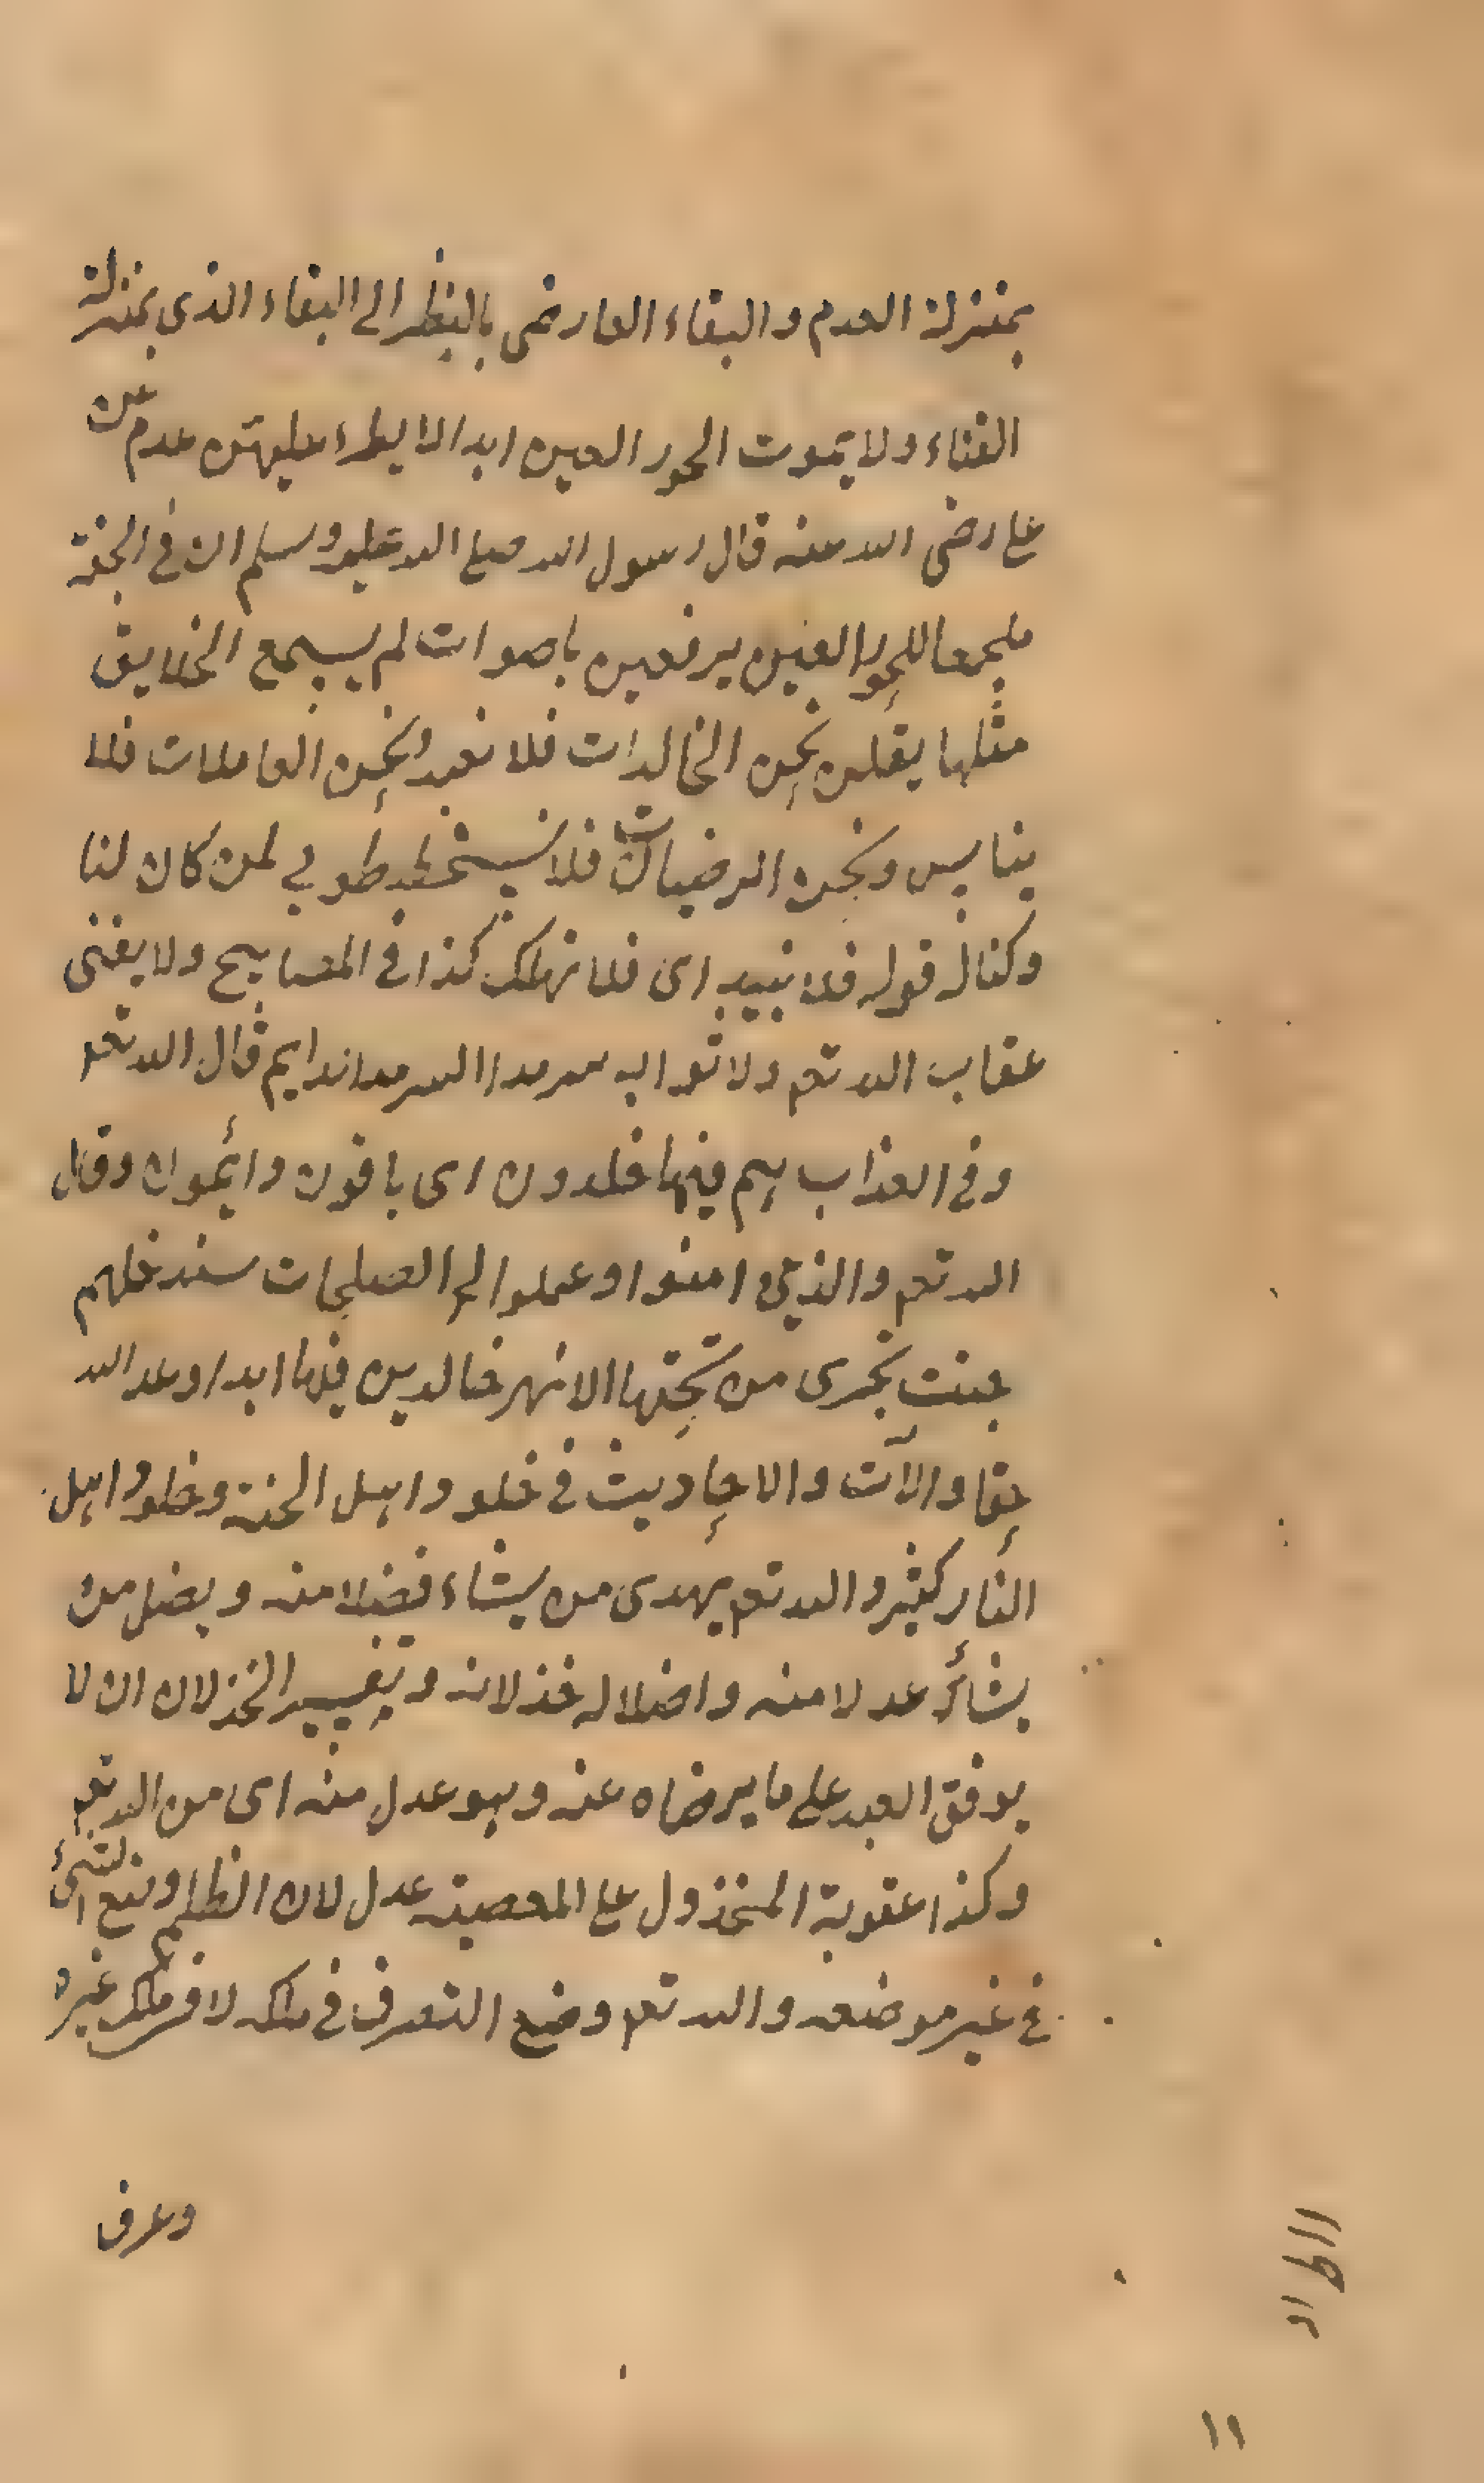 بمنزلة العدم والبقاء العارضى بالنظر الى البقاء الذى بمنزلة
الفناء ولا يموت الحور العين ابدا لا يطراء عليهن عدم عن
على رضى الله عنه قال رسول الله صلى الله عليه وسلم ان فى الجنة
للحور العين يرفعين باصوات لم يسمع الخلايق
مثلها يقلن نحن الخالدات فلا نعبد ونحن العاملات فلا
يناس ونحن الرضيات فلا نسخط طوبى لمن كان لنا
وكنا له قوله فلا نبيد اى فلا نهلك كذا فى المصابيح ولا يفنى
عقاب الله تعم ولا ثوابه سرمدا السرمد اندايم قال الله تعم
وفى العذاب هم فيها خلدون اى باقون دائمون وقال
الله تعم والذين امنوا وعملوا الصلحات سندخلهم
جنت تجرى من تحتها الانهر خالدين فيها ابدا وعد الله
حقا والآت والاحاديث فى خلود اهل الجنة وخلود اهل
النار كثير والله تعم يهدى من يشاء فضلا منه ويضل من
يشأ عدلا منه واضلاله خذلانه وتفسير الخذلان ان لا
يوفق العبد على ما يرضاه عنه وهو عدل منه اى من الله تعم
وكذا عقوبة المخذول على المعصية عدل لان الظلم وضع الشئ
فى غير موضعه والله تعم وضع التصرف فى ملكه لا فى ملك غيره
وعرف
١١